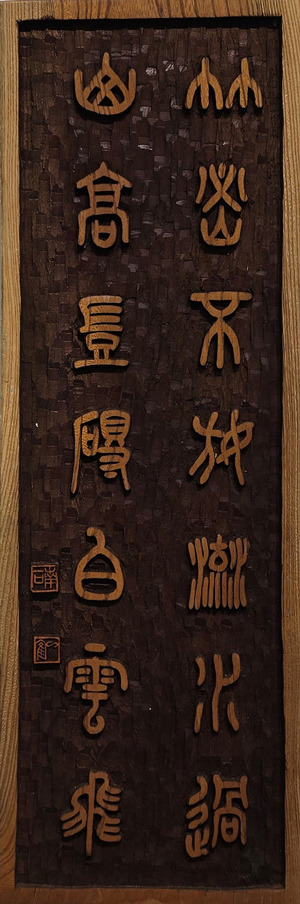 竹密不妨流水過
山高豈碍白雲飛